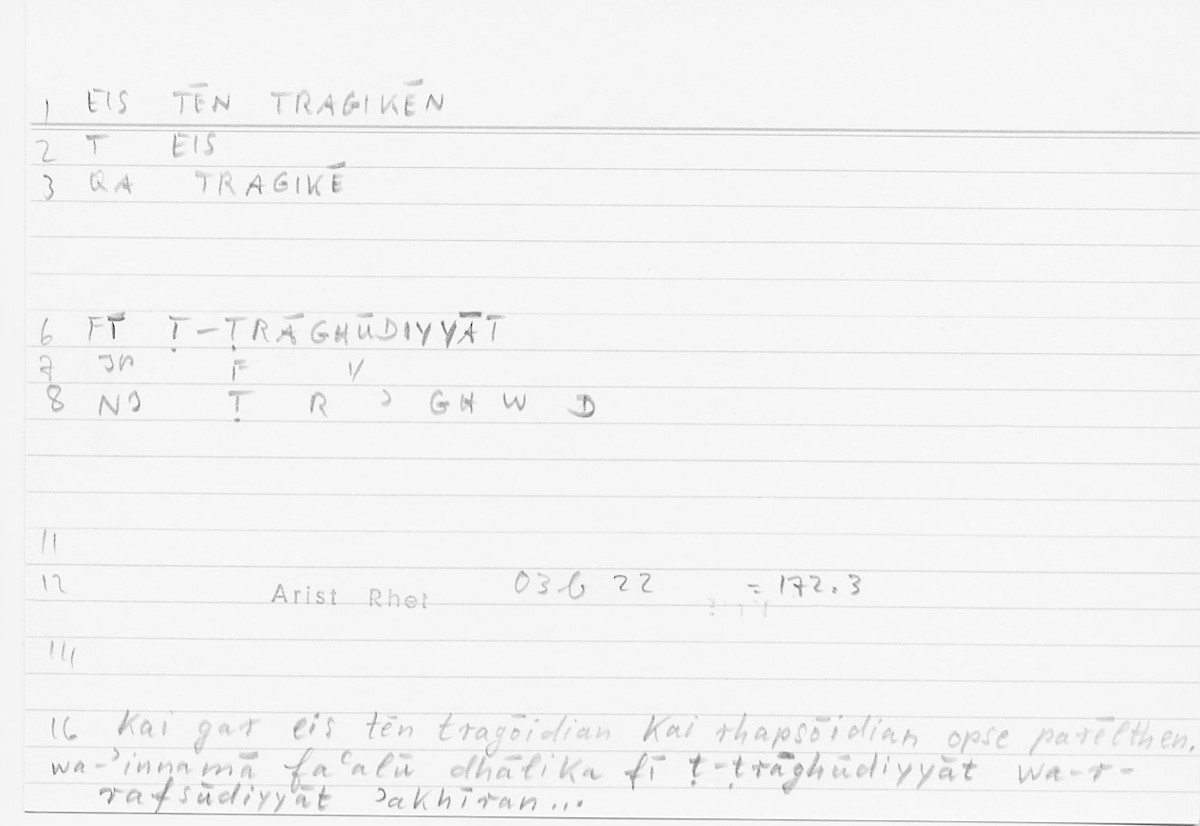 1 EIS TĒN TRAGIKĒN
2 T EIS
3 QA TRAGIKĒ
6 FĪ Ṭ-ṬRĀGHŪDIYYĀT
7 F
8 NJ Ṭ R ʾ GH W D
11
12 Arist Rhet 03b 22 = 172.3
14
16 Kai gar eis tēn tragōidian kai rhapsōidian opse parēlthen,
wa-ʾinnamā faʿalū dhālika fī ṭ-ṭrāghūdiyyāt wa-r-
rafsūdiyyāt ʾakhīran...